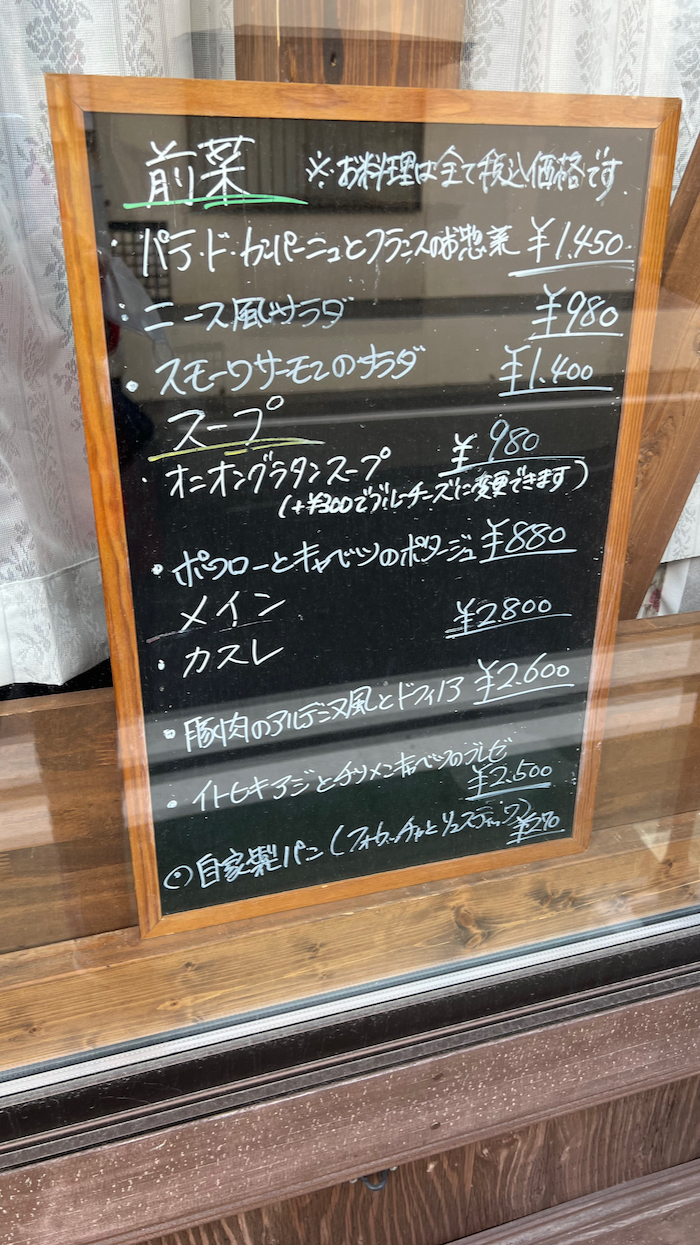 前菜 ※お料理は全て税込価格です
・パテ・ド・カンパーニュとフランスのお惣菜 ¥1.450
・ニース風サラダ ¥980
・スモークサーモンのサラダ ¥1.400
スープ
・オニオングラタンスープ ¥980
(+¥300でブルーチーズに変更できます)
・ポワローとキャベツのポタージュ ¥880
メイン
・カスレ ¥2.800
・豚肉のアルデンヌ風とドフィノア ¥2.600
・イトヒキアジとチリメンキャベツのブレゼ
¥2.500
◎自家製パン(フォカッチャとリュスティック) ¥270